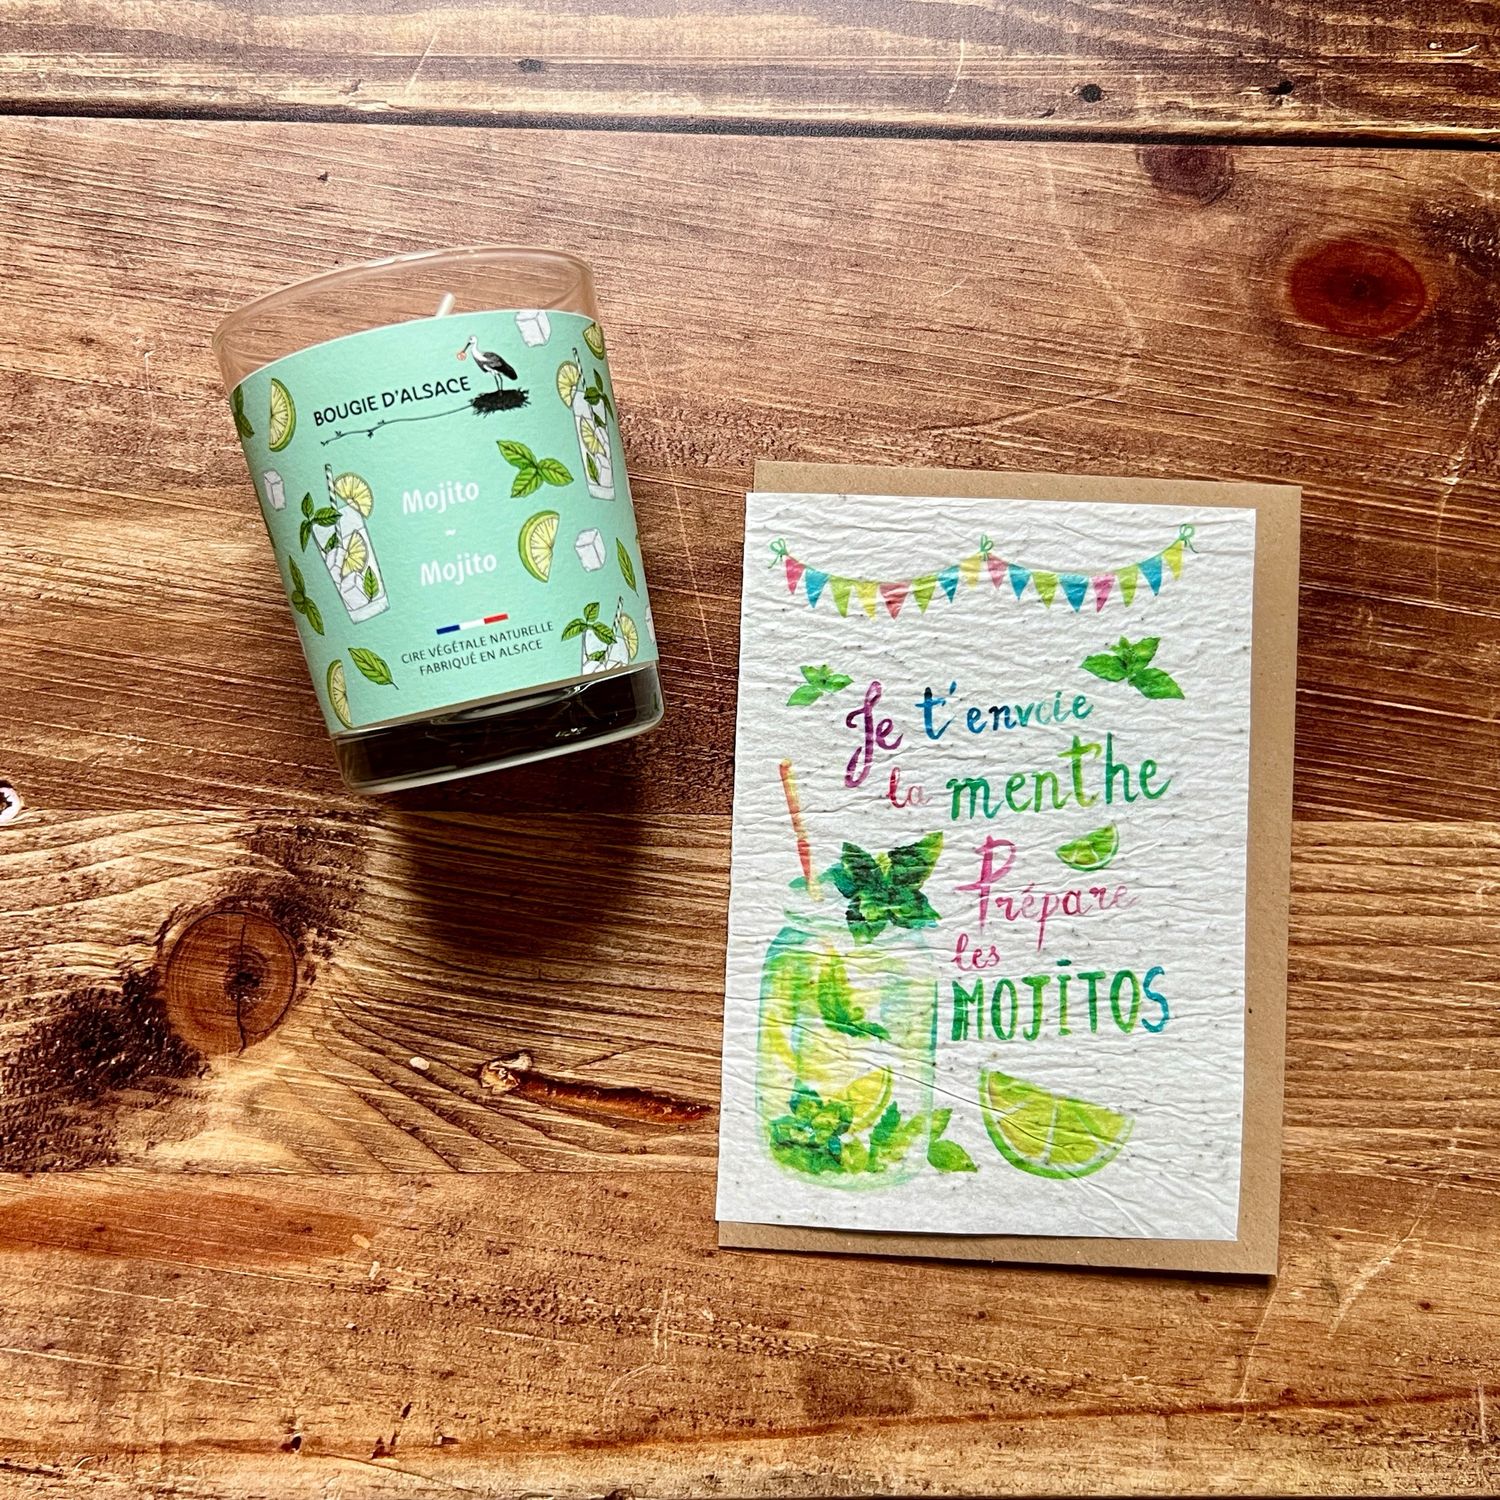 BOUGIE D'ALSACE
Mojito
~
Mojito
CIRE VÉGÉTALE NATURELLE
FABRIQUÉ EN ALSACE
Je t'envoie
la menthe
Prépare
les
MOJITOS